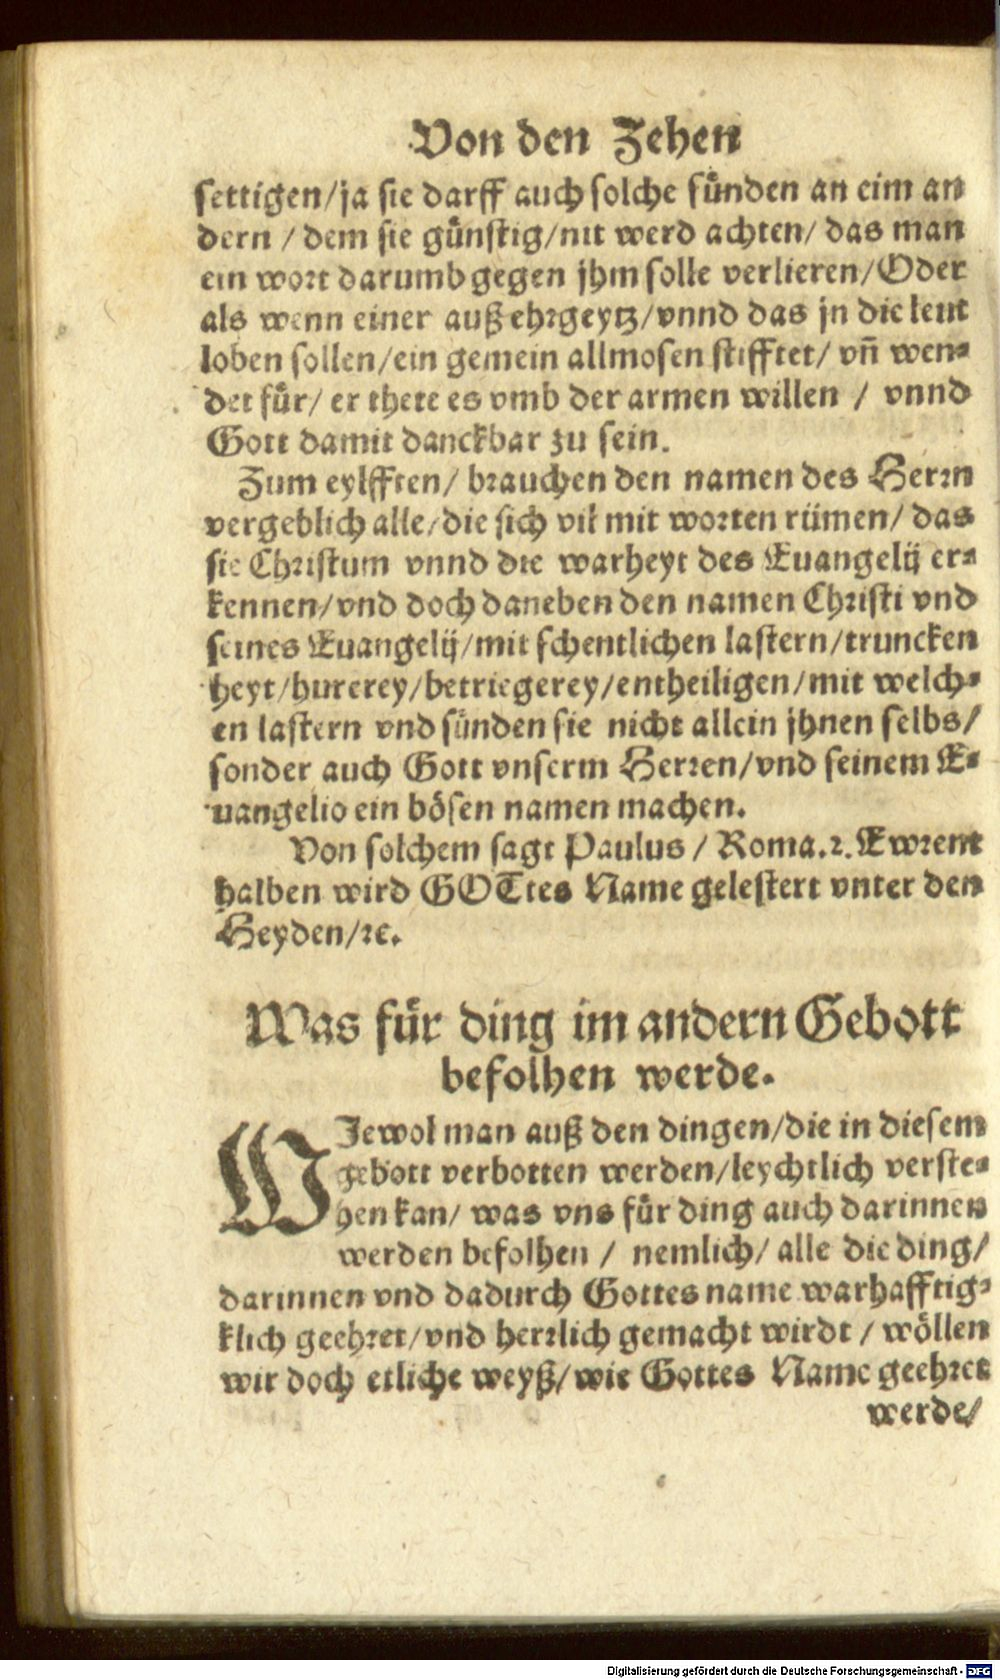 Von den Zehen
settigen/ja sie darff auch solche sünden an eim an
dern / dem sie günstig/nit werd achten/ das man
ein wort darumb gegen jhm solle verlieren/Oder
als wenn einer auß ehrgeytz/vnnd das jn die leut
loben sollen/ein gemein allmosen stifftet/ vñ wen-
det für/ er thete es vmb der armen willen / vnnd
Gott damit danckbar zu sein.
Zum eylfften/ brauchen den namen des Herrn
vergeblich alle/die sich vil mit worten rümen/ das
sie Christum vnnd die warheyt des Euangelij er-
kennen/vnd doch daneben den namen Christi vnd
seines Euangelij/mit schentlichen lastern/truncken
heyt/hurerey/betriegerey/entheiligen/mit welch-
en lastern vnd sünden sie nicht allein jhnen selbs/
sonder auch Gott vnserm Herren/vnd seinem E-
uangelio ein bösen namen machen.
Von solchem sagt Paulus / Roma.2. Ewrent
halben wird GOTtes Name gelestert vnter den
Heyden/ꝛc.
Was für ding im andern Gebott
befolhen werde.
WJewol man auß den dingen/die in diesem
gebott verbotten werden/leychtlich verste-
hen kan/ was vns für ding auch darinnen
werden befolhen / nemlich/ alle die ding/
darinnen vnd dadurch Gottes name warhafftig-
klich geehret/vnd herrlich gemacht wirdt / wöllen
wir doch etliche weyß/wie Gottes Name geehret
werde/
Digitalisierung gefördert durch die Deutsche Forschungsgemeinschaft - DFG